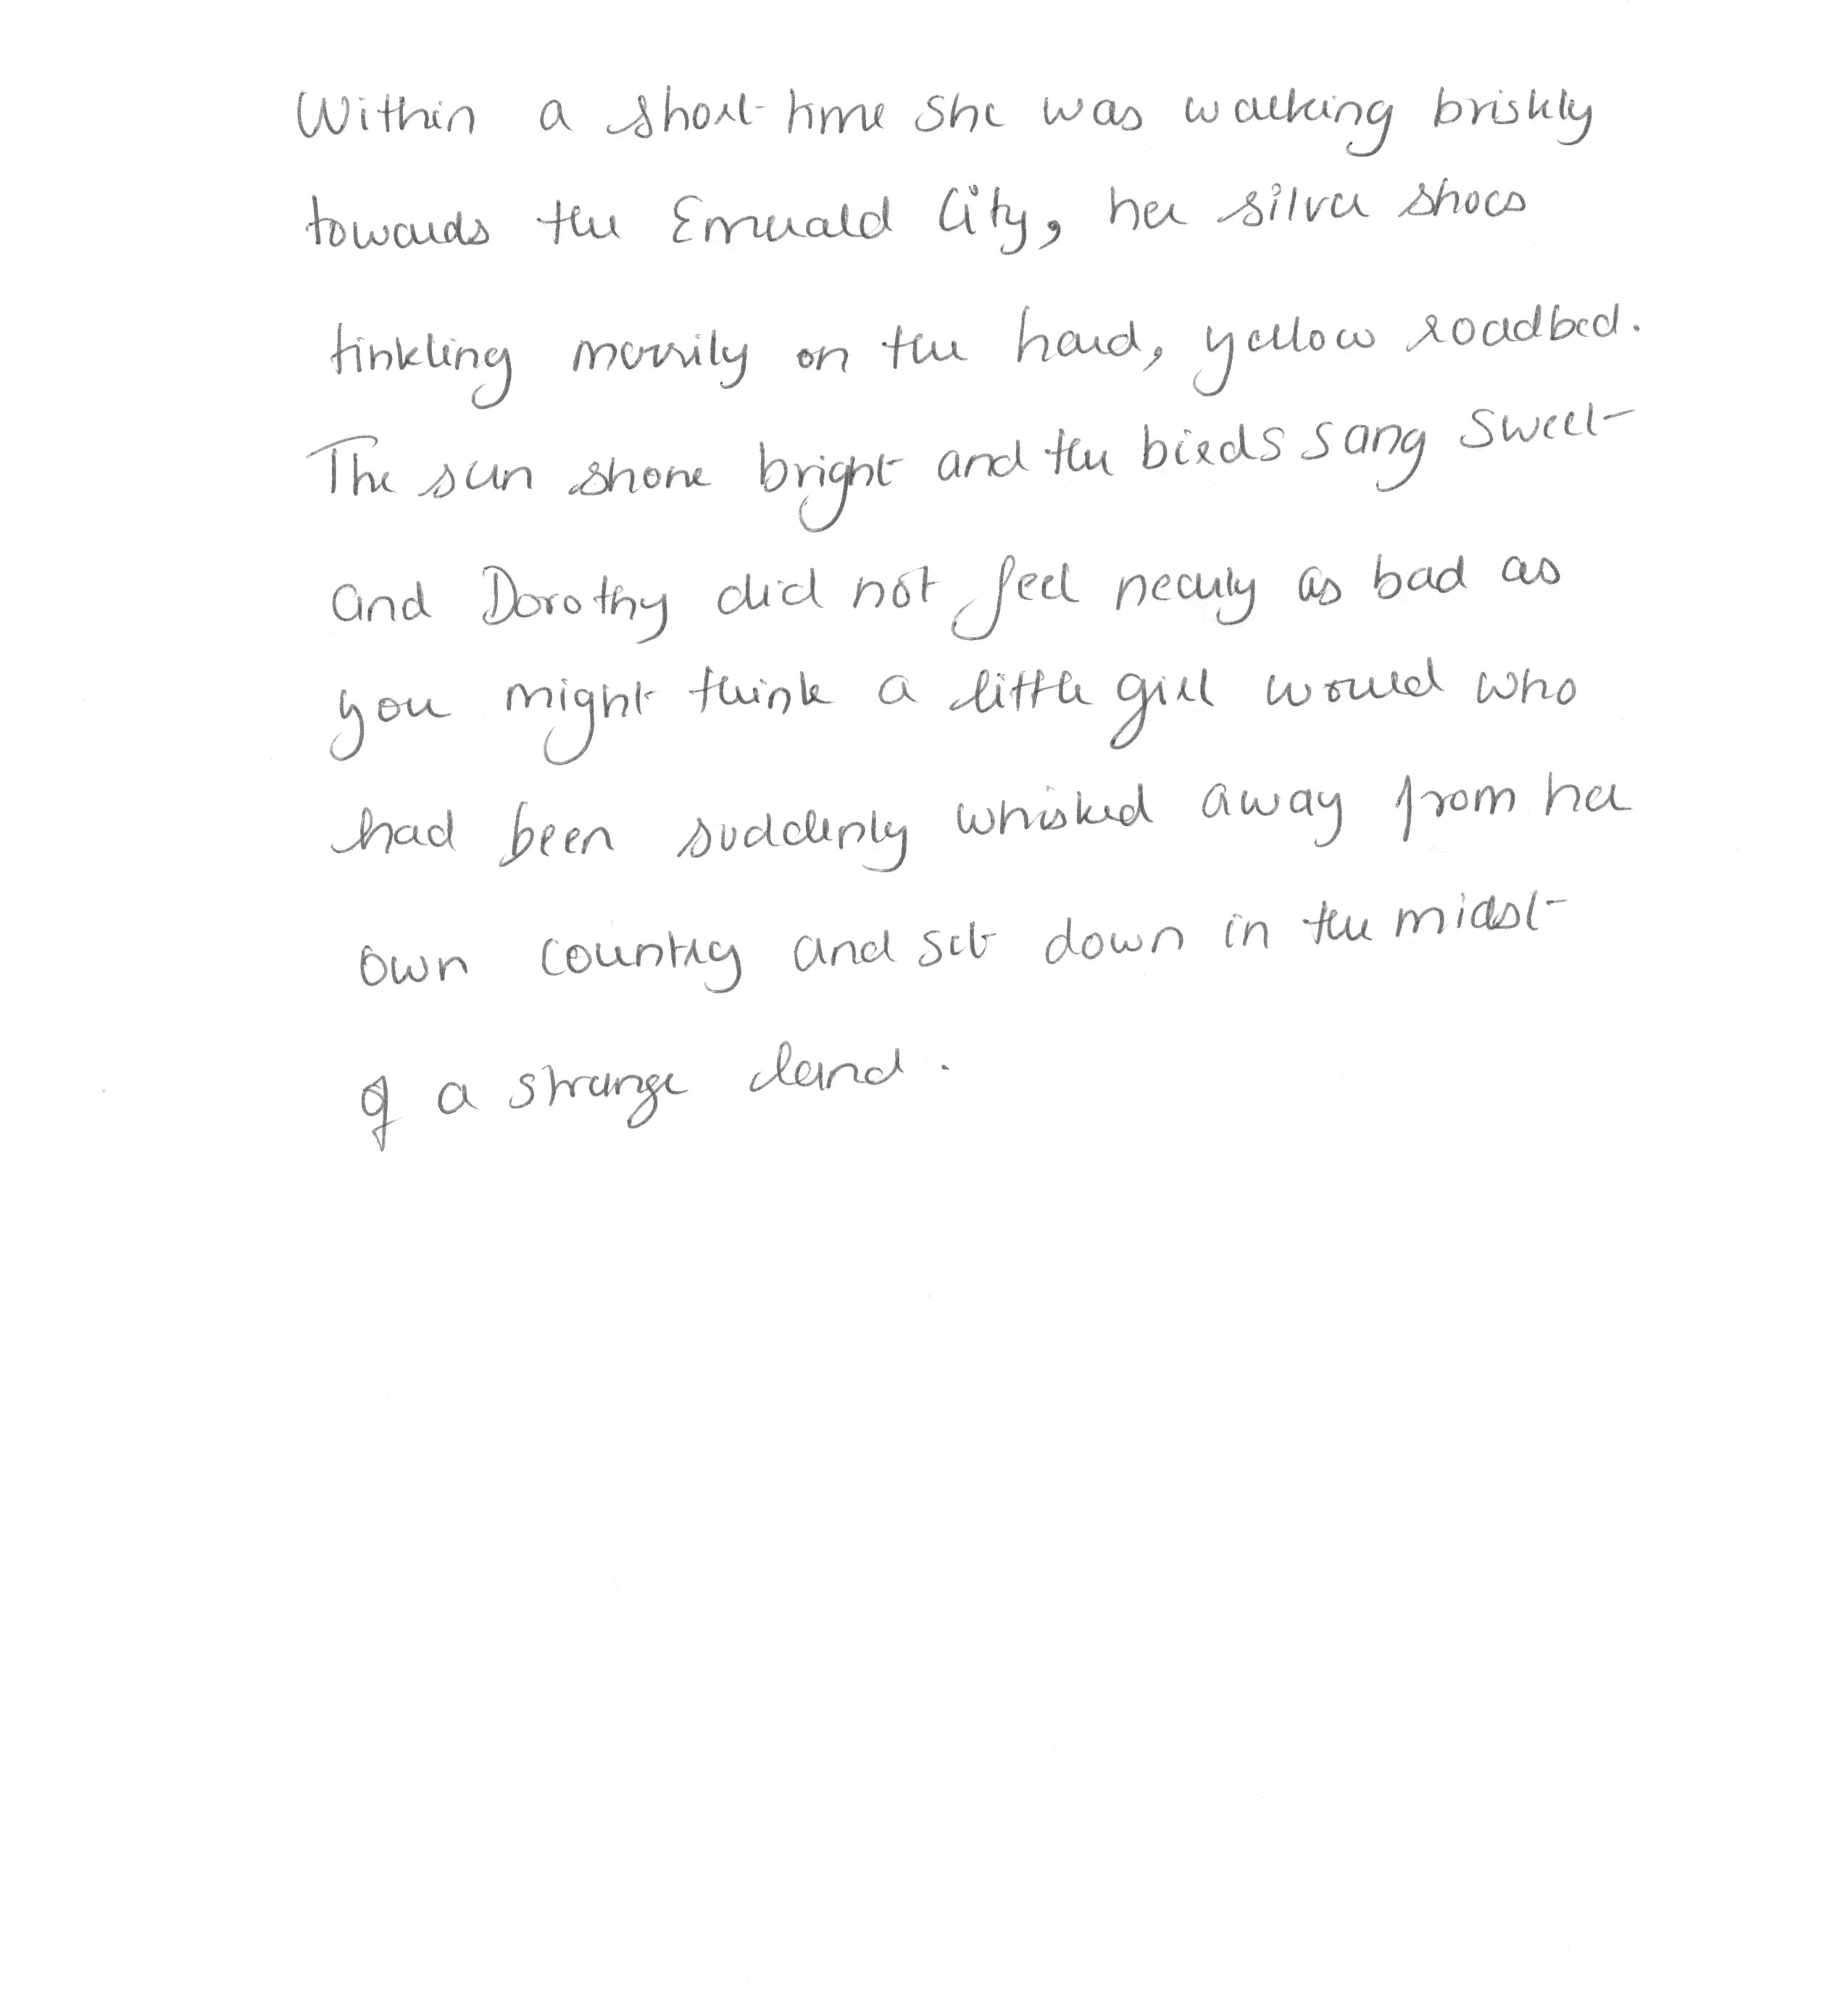 Within a short time she was walking briskly
towards the Emerald City, her silver shoes
tinkling merrily on the hard, yellow roadbed.
The sun shone bright and the birds sang sweet
and Dorothy did not feel nearly as bad as
you might think a little girl would who
had been suddenly whisked away from her
own country and set down in the midst
of a strange land.